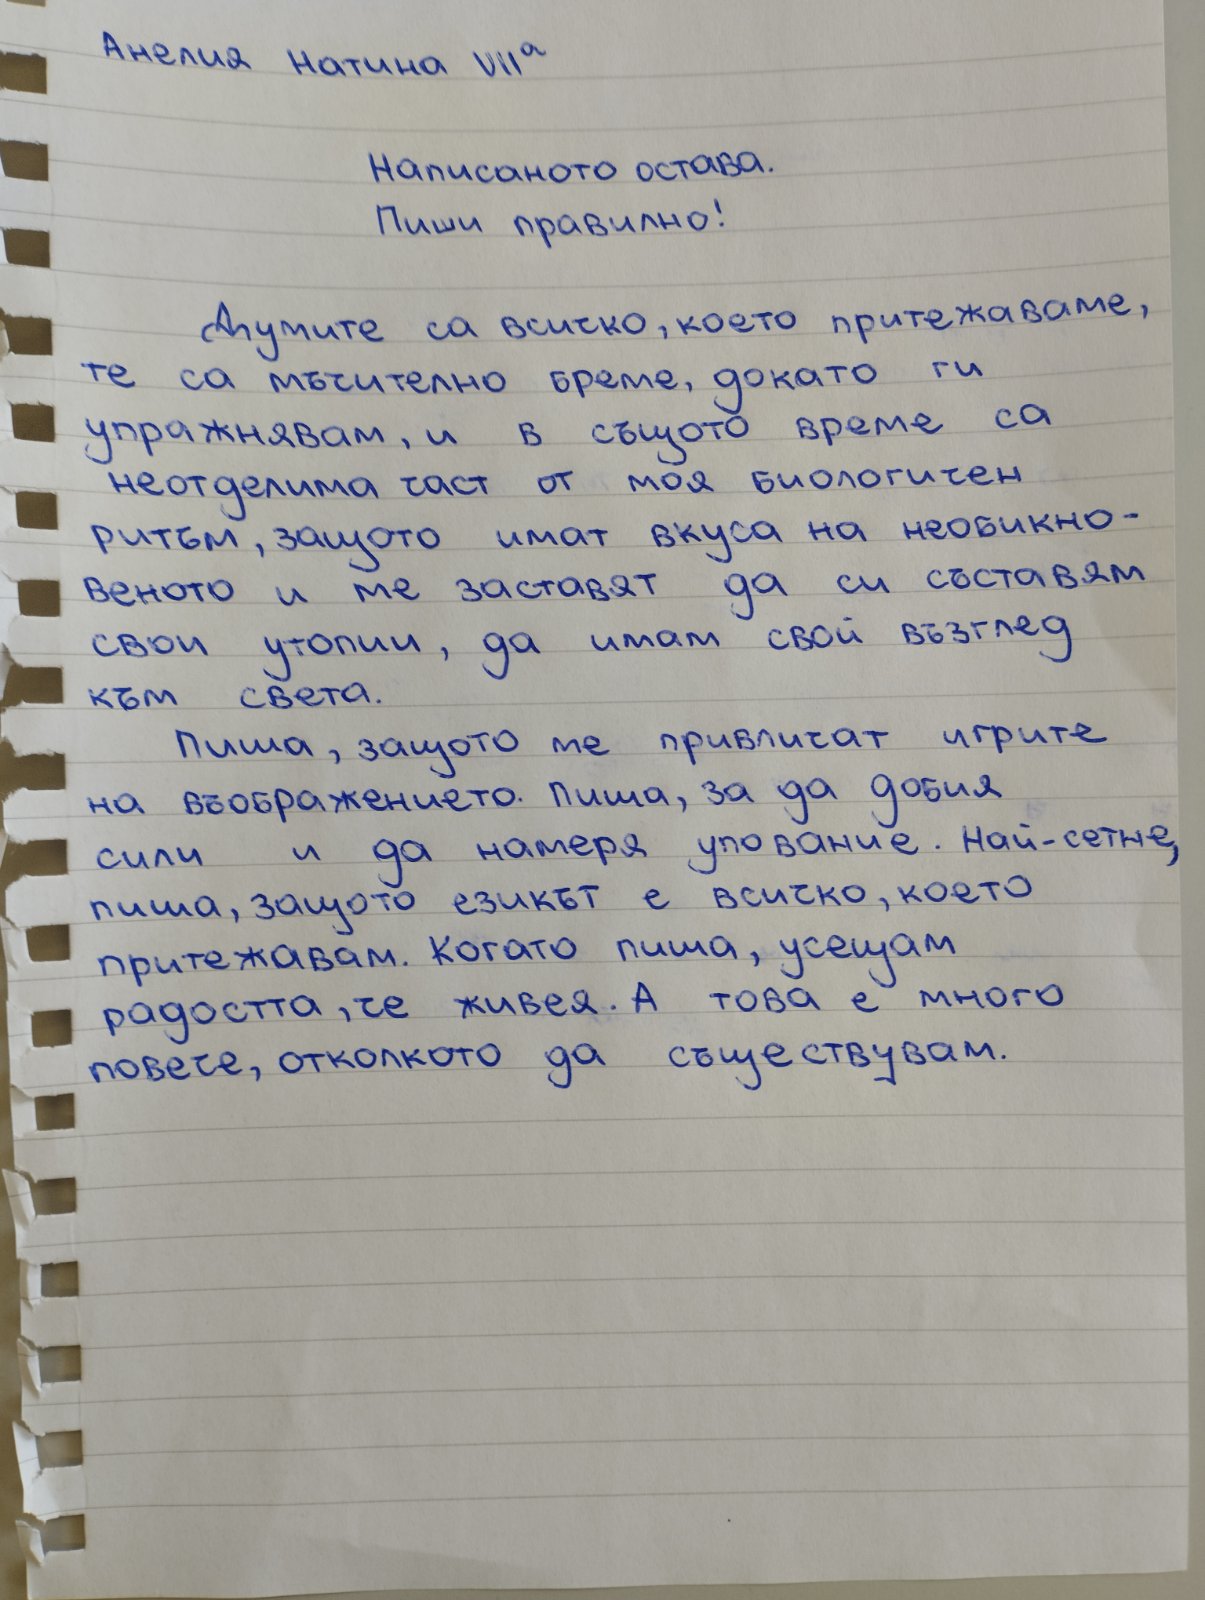 Анелия Натина VIIа
Написаното остава.
Пиши правилно!
Думите са всичко, което притежаваме,
те са мъчително бреме, докато ги
упражнявам, и в същото време са
неотделима част от моя биологичен
ритъм, защото имат вкуса на необикно-
веното и ме заставят да си съставям
свои утопии, да имам свой възглед
към света.
Пиша, защото ме привличат игрите
на въображението. Пиша, за да добия
сили и да намеря упование. Най-сетне,
пиша, защото езикът е всичко, което
притежавам. Когато пиша, усещам
радостта, че живея. А това е много
повече, отколкото да съществувам.